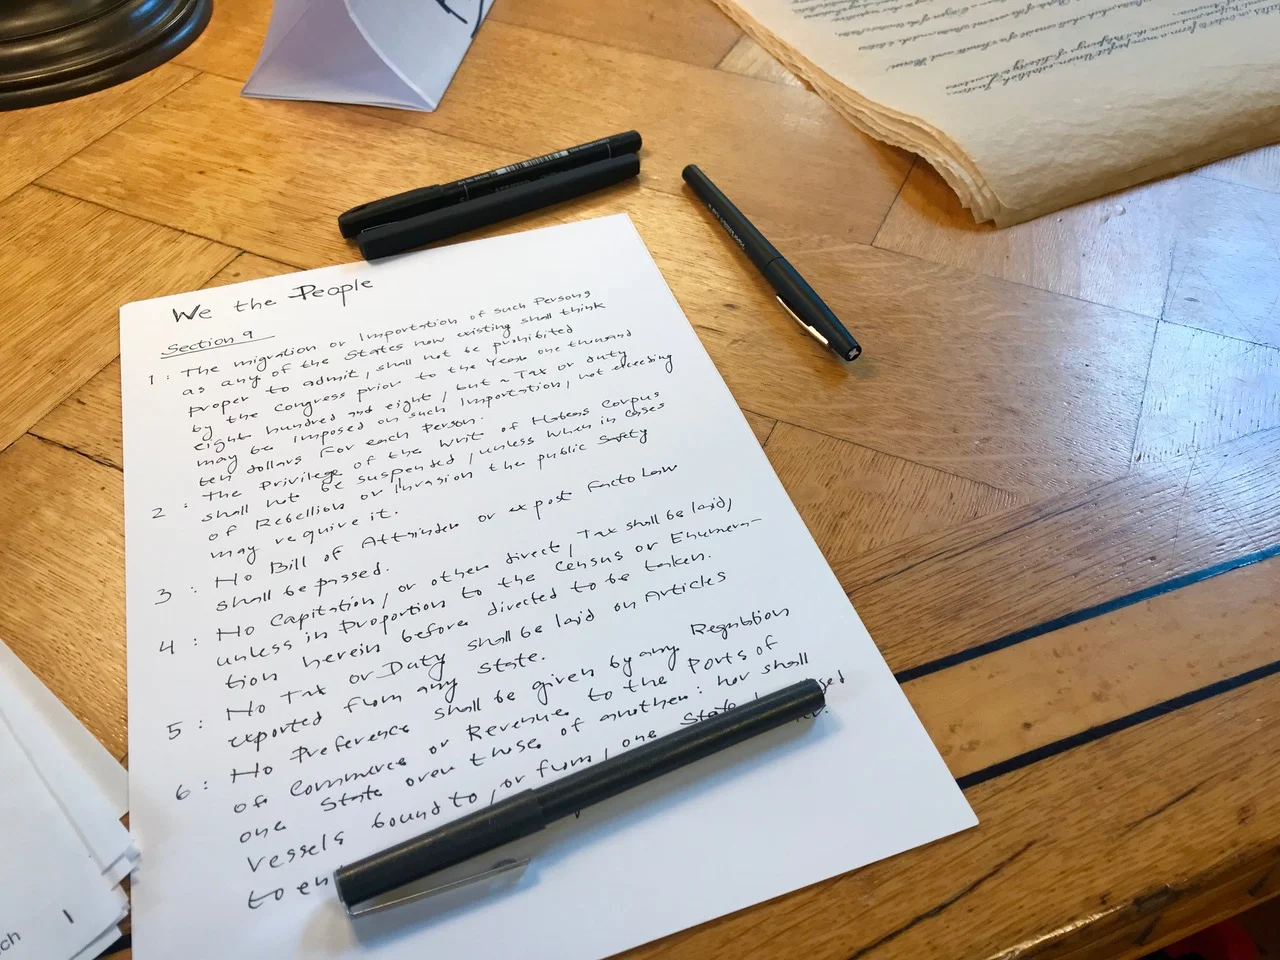 We the People
Section 9
1: The migration or Importation of such Persons
as any of the States now existing shall think
proper to admit, shall not be prohibited
by the Congress prior to the Year one thousand
eight hundred and eight, but a Tax or duty
may be imposed on such Importation, not exceeding
ten dollars for each Person.
2: The Privilege of the Writ of Habeas Corpus
shall not be suspended, unless when in cases
of Rebellion or Invasion the public Safety
may require it.
3: No Bill of Attainder or ex post Facto Law
shall be passed.
4: No Capitation, or other direct, Tax shall be laid,
unless in Proportion to the Census or Enumera-
tion herein before directed to be taken.
5: No Tax or Duty shall be laid on Articles
exported from any State.
6: No Preference shall be given by any Regulation
of Commerce or Revenue to the Ports of
one State over those of another: nor shall
Vessels bound to, or from, one State
to en